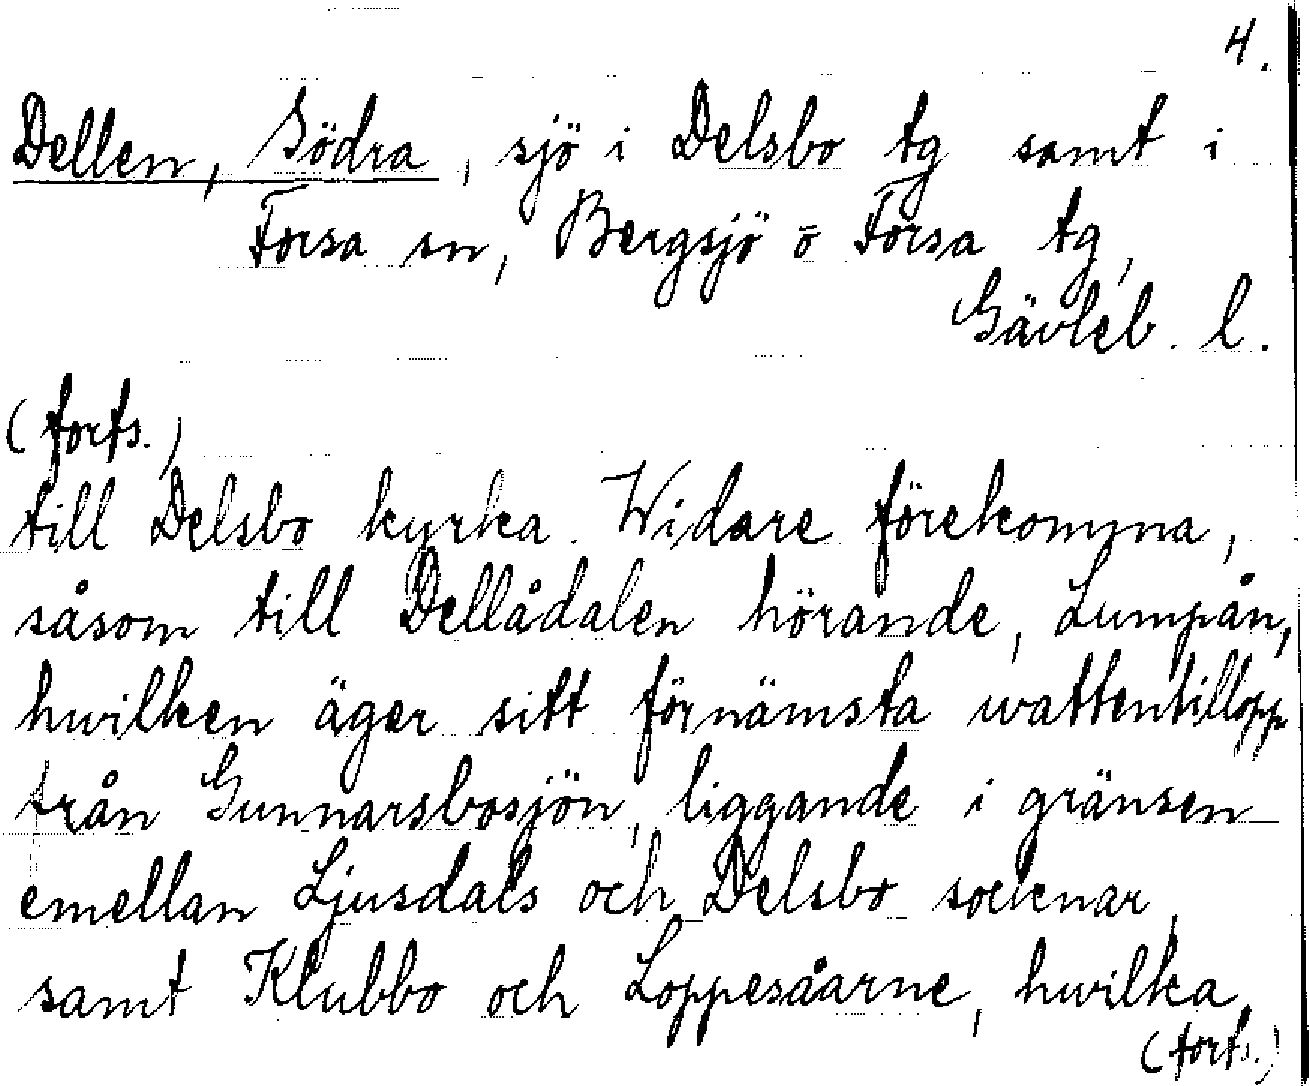 4.
Dellen, Södra, sjö i Delsbo tg samt i
Forsa sn, Bergsjö o Forsa tg,
Gävleb. l.
(forts.)
till Delsbo kyrka. Widare förekomma,
såsom till Dellådalen hörande, Lumpån,
hwilken äger sitt förnämsta wattentillopp
från Gunnarsbosjön, liggande i gränsen
emellan Ljusdals och Delsbo socknar,
samt Klubbo och Loppesåarne, hwilka
(forts.)